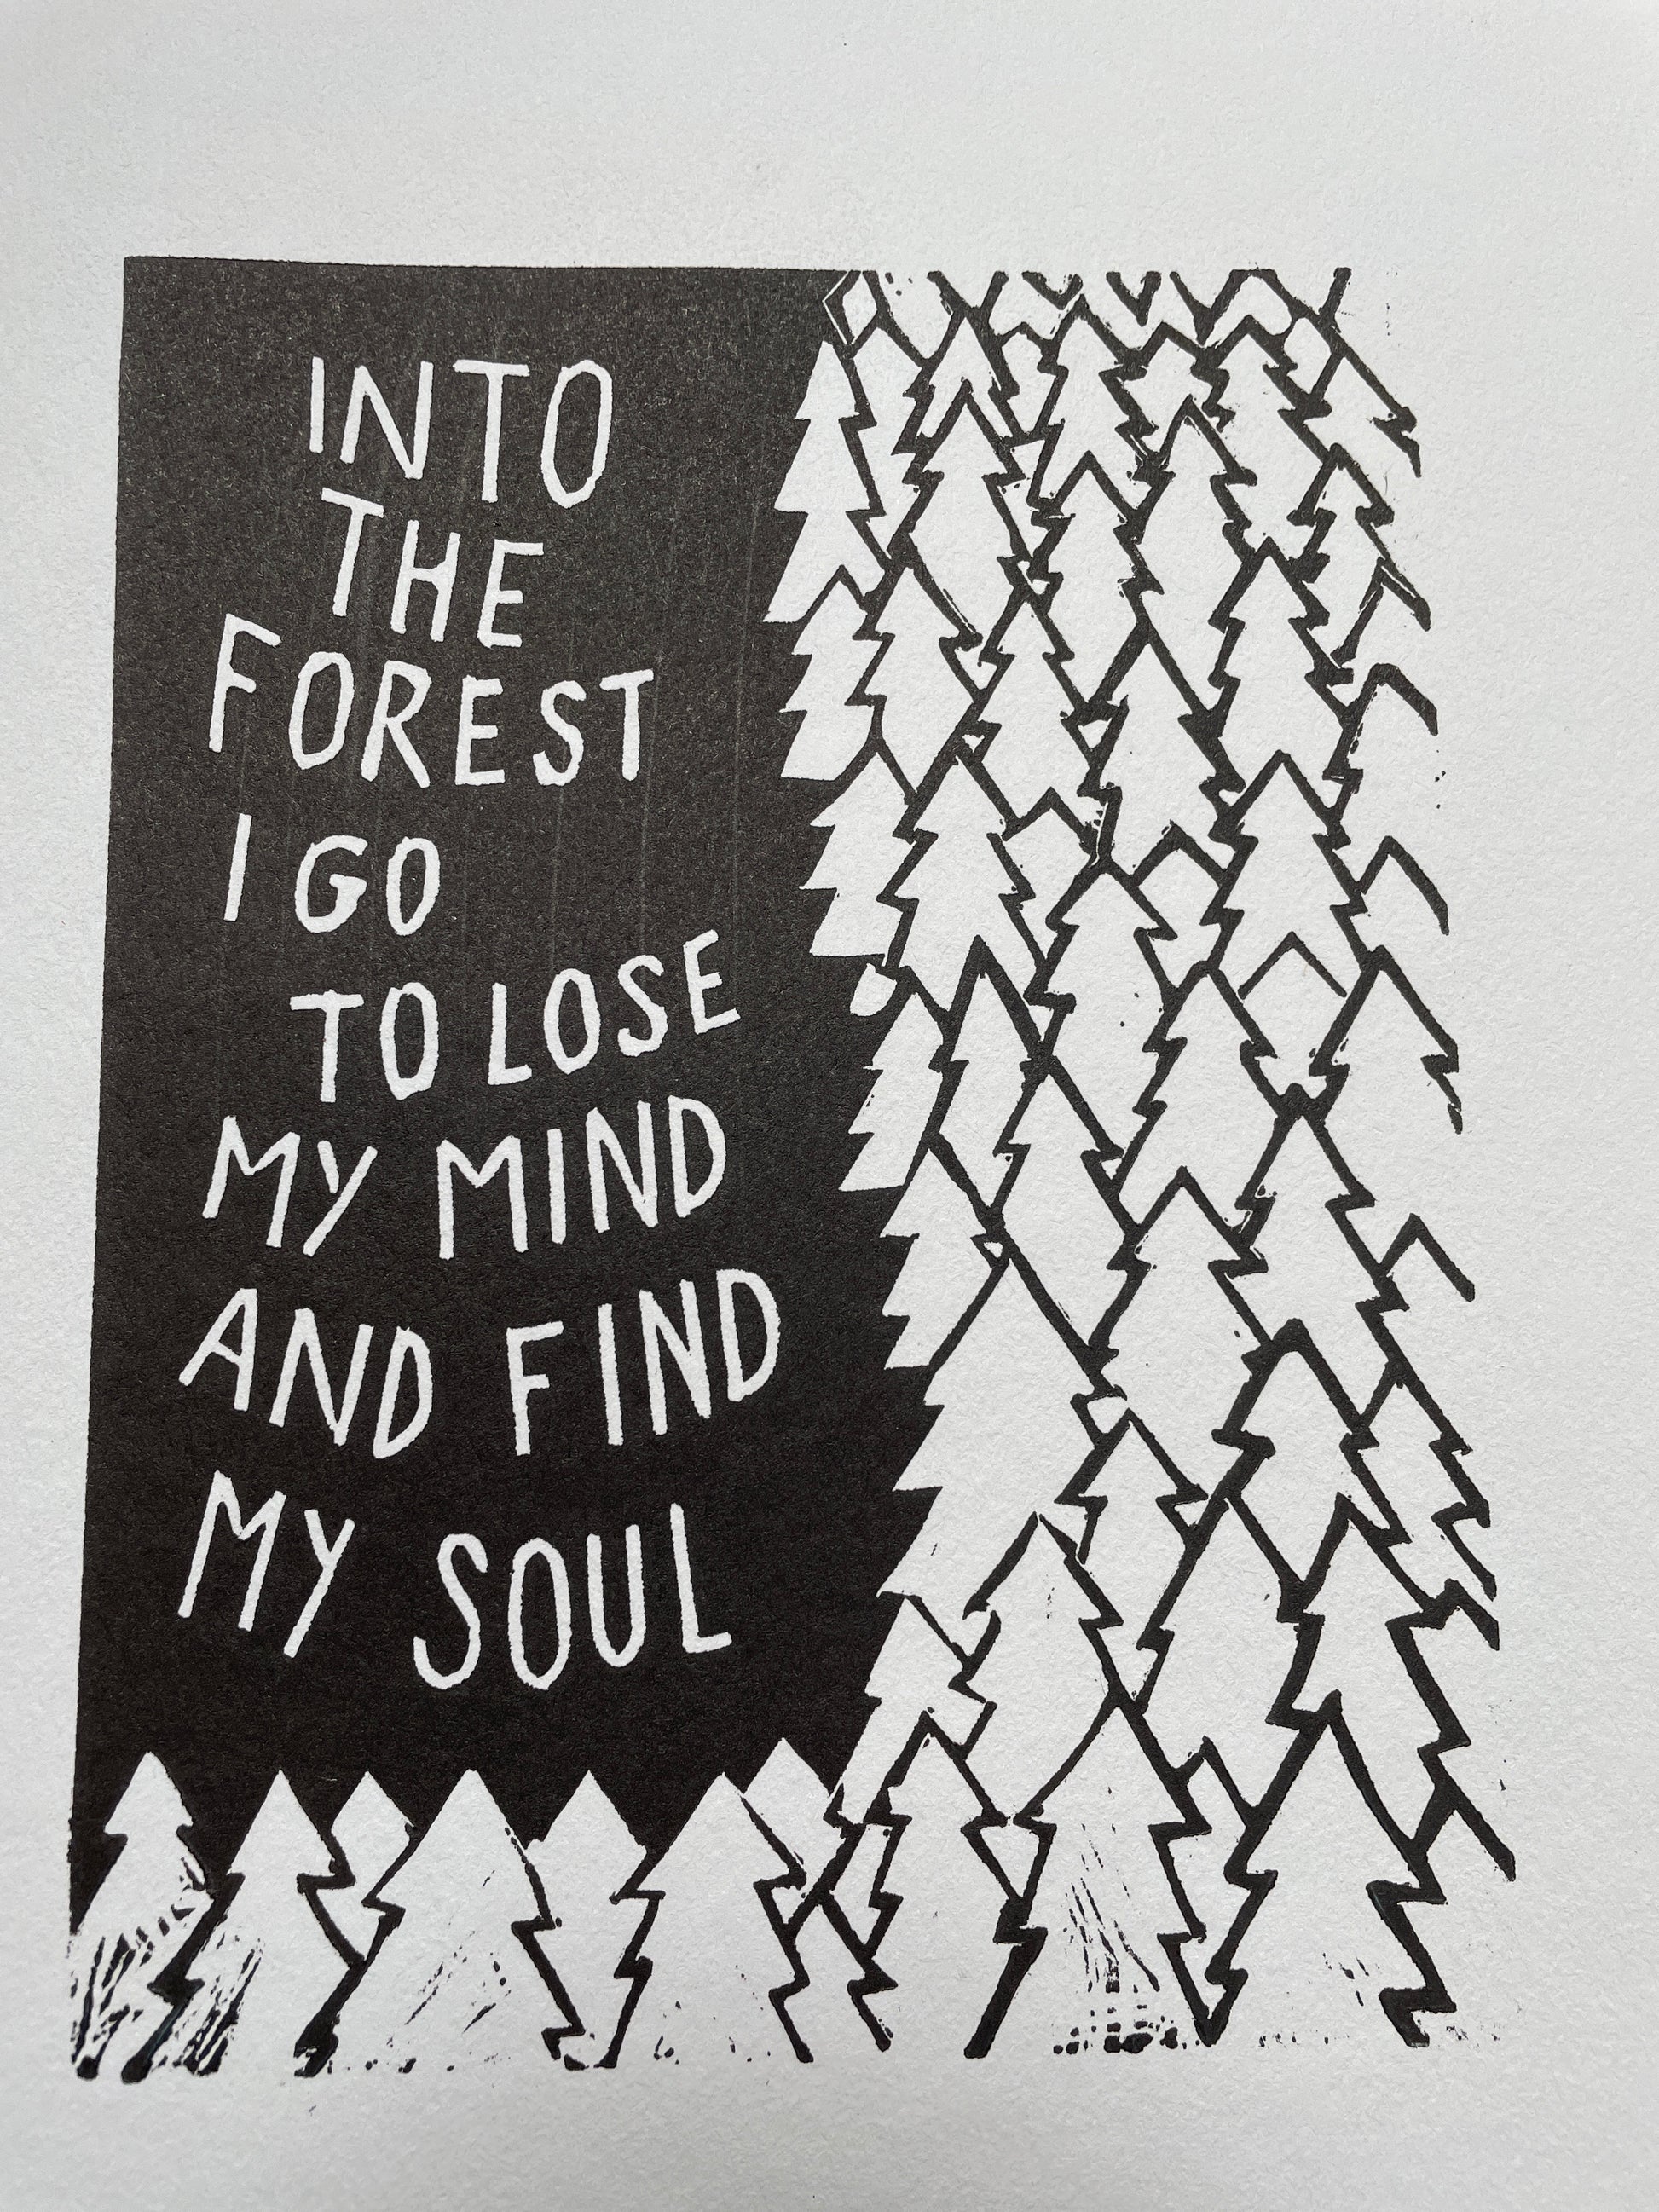 INTO
THE
FOREST
I GO
TO LOSE
MY MIND
AND FIND
MY SOUL